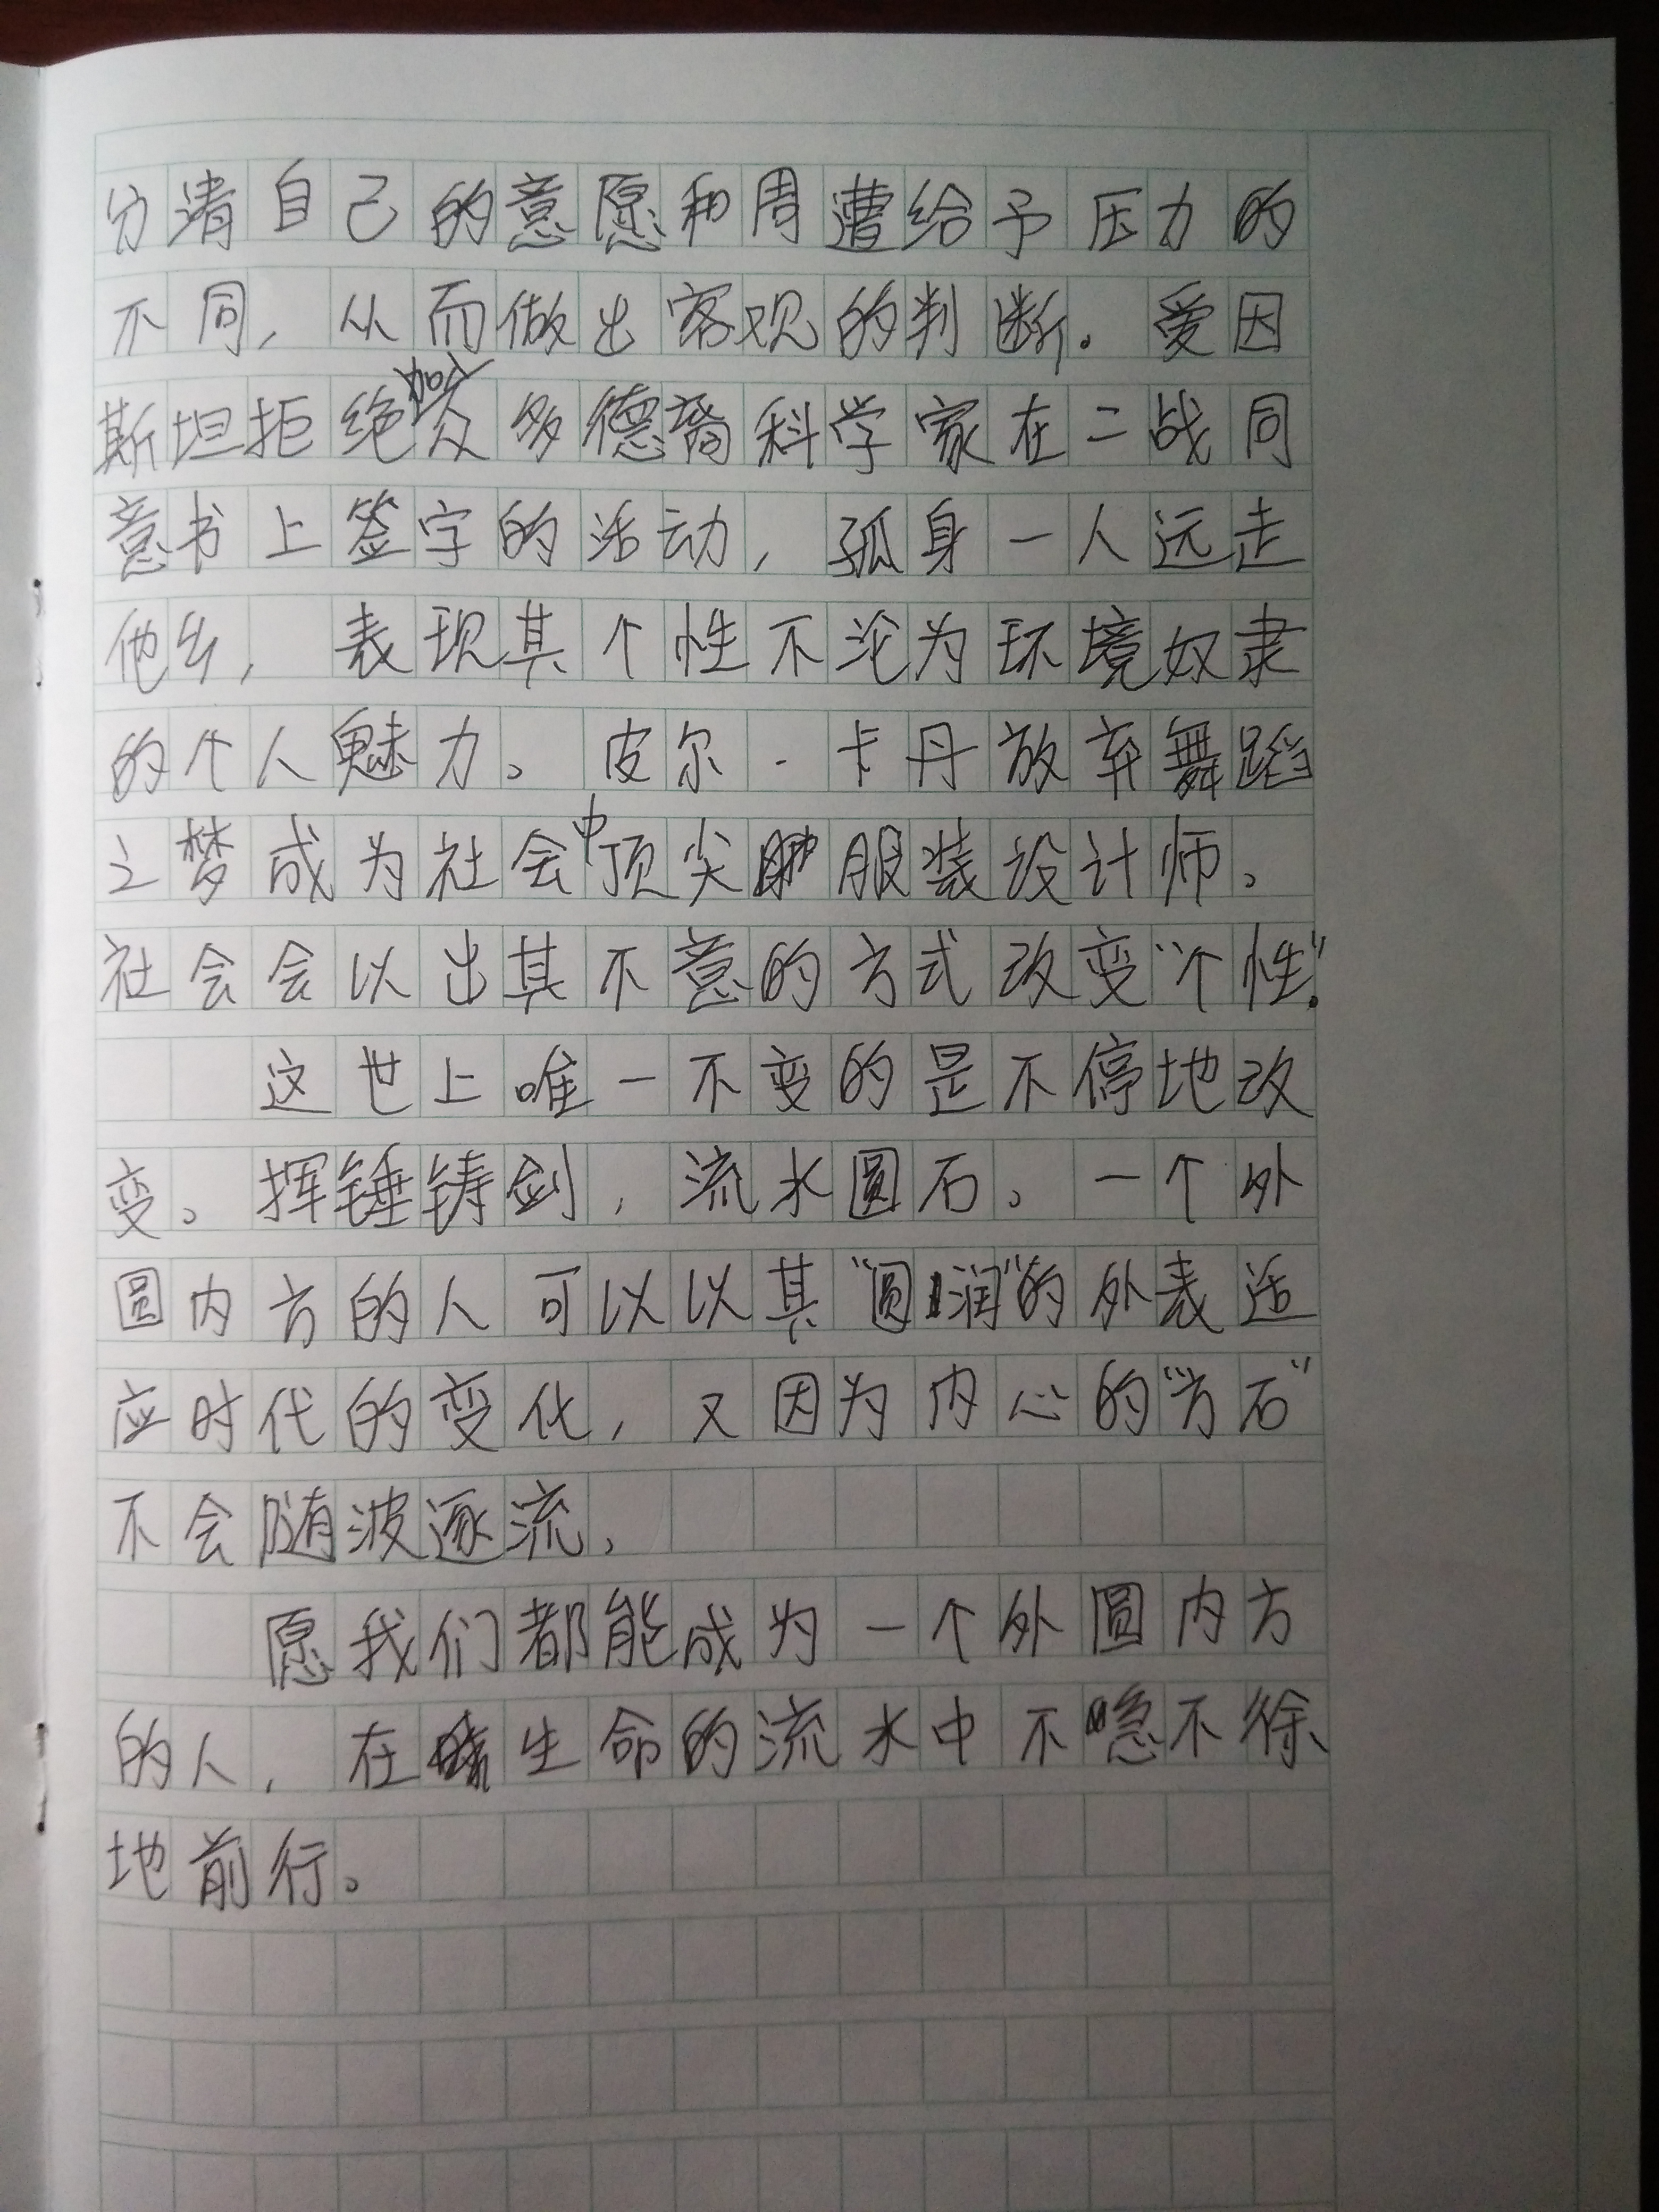 分清自己的意愿和周遭给予压力的
不同，从而做出客观的判断。爱因
斯坦拒绝加入众多德裔科学家在二战同
意书上签字的活动，孤身一人远走
他乡，表现其个性不沦为环境奴隶
的个人魅力。皮尔·卡丹放弃舞蹈
之梦成为社会中顶尖服装设计师。
社会会以出其不意的方式改变“个性”。
这世上唯一不变的是不停地改
变。挥锤铸剑，流水圆石。一个外
圆内方的人可以以其“圆润”的外表适
应时代的变化，又因为内心的“方石”
不会随波逐流。
愿我们都能成为一个外圆内方
的人，在生命的流水中不急不徐
地前行。